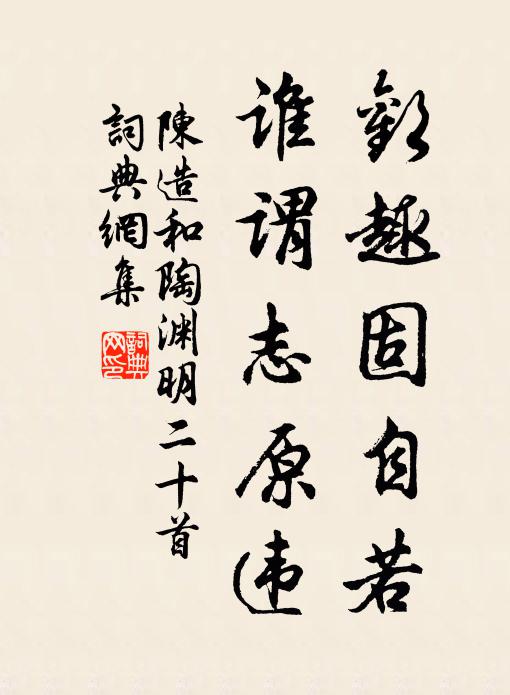 歡趣固自若
誰謂志原违
陳造和陶渊明二十首
詞典網集
詞典
网印